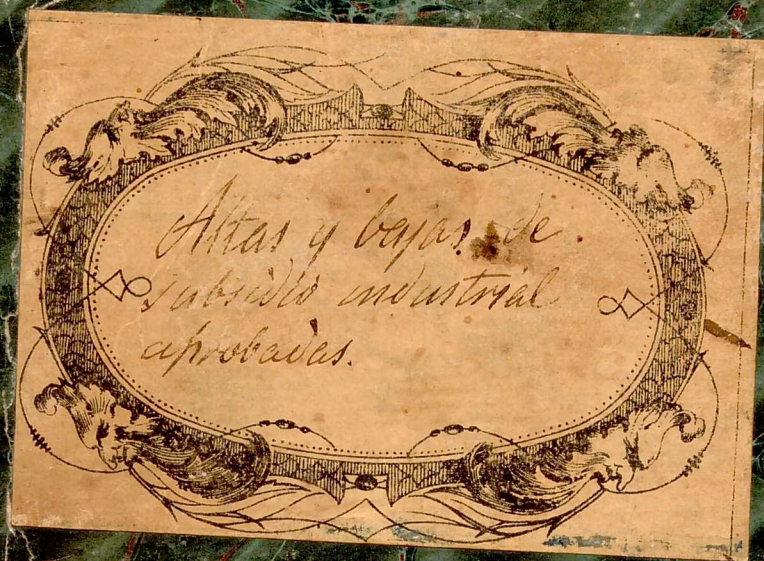 Altas y bajas de
subsidio industrial
aprobadas.